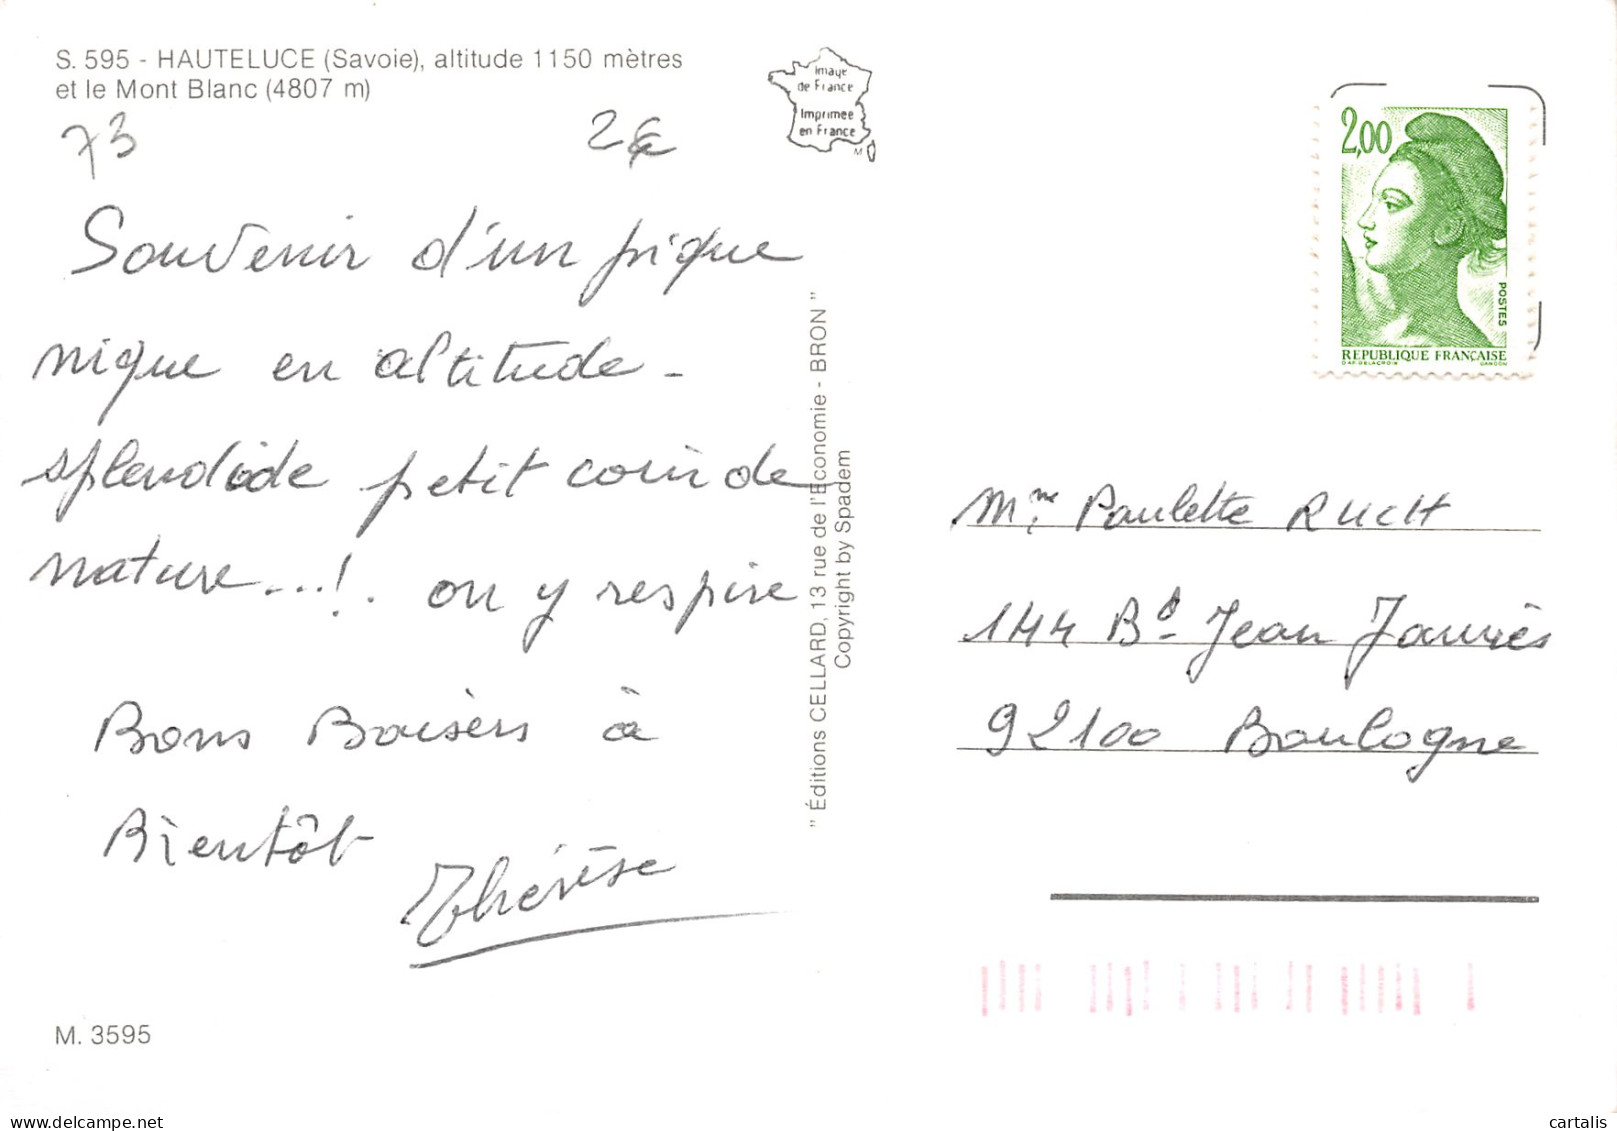 S. 595 - HAUTELUCE (Savoie), altitude 1150 mètres
et le Mont Blanc (4807 m)
Image
de France
Imprimée
en France
M
73
2€
Souvenir d'un pique
nique en altitude -
splendide petit coin de
nature...! . on y respire
Bons Baisers à
Bientôt
Thérèse
M. 3595
" Éditions CELLARD, 13 rue de l'Economie - BRON "
Copyright by Spadem
2,00
POSTES
REPUBLIQUE FRANÇAISE
D'AP. DELACROIX
GANDON
Mme Paulette RUCH
144 Bd Jean Jaurès
92100 Boulogne
cartalis